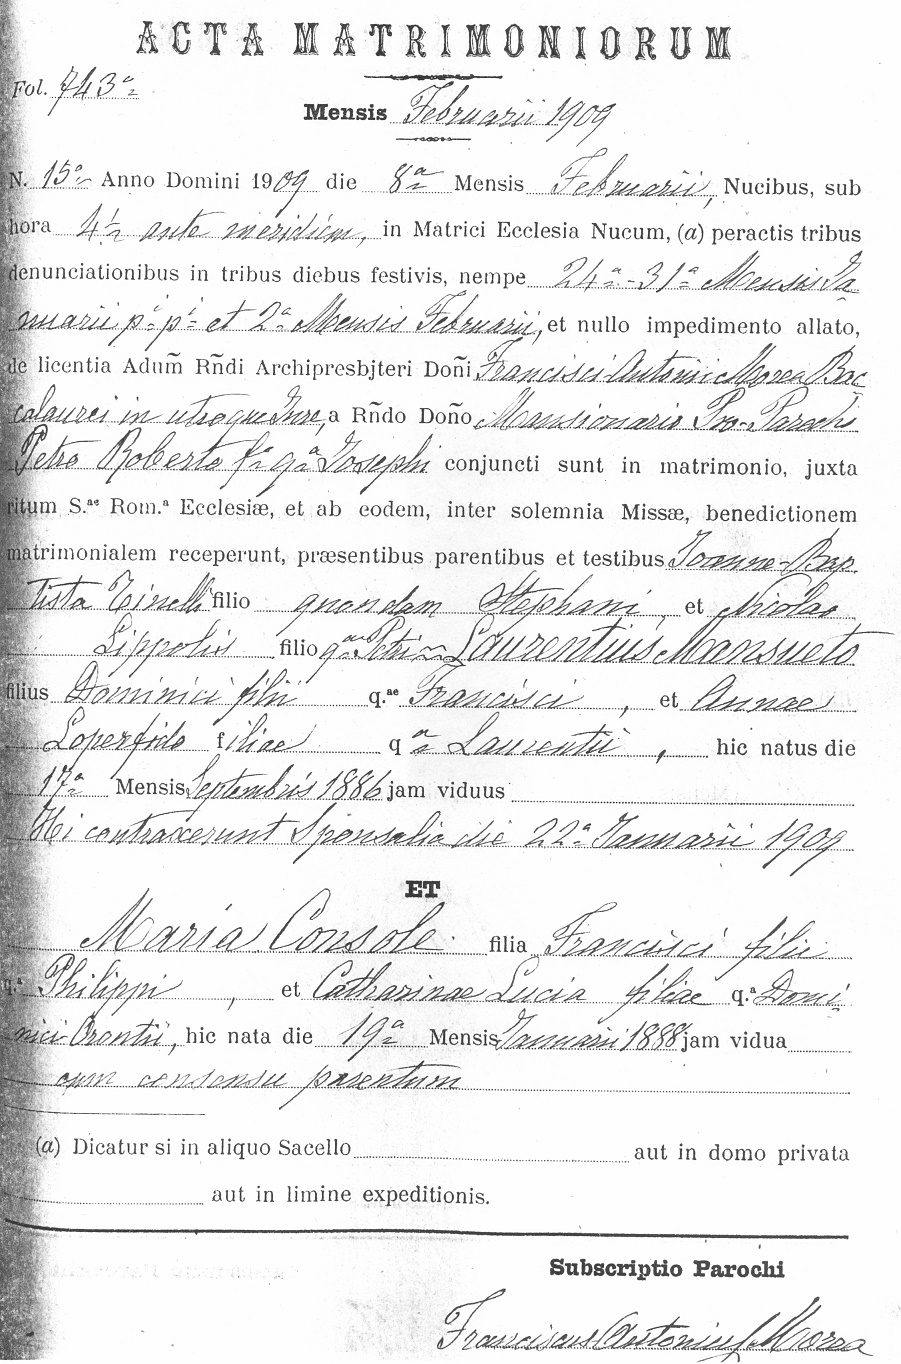 ACTA MATRIMONIORUM
Fol. 743ª
Mensis Februarii 1909
N. 15ª Anno Domini 1909 die 8ª Mensis Februarii, Nucibus, sub
hora 4½ ante meridiem, in Matrici Ecclesia Nucum, (a) peractis tribus
denunciationibus in tribus diebus festivis, nempe 24ª-31ª Mensis Ja
nuarii pⁱ pⁱ et 2ª Mensis Februarii, et nullo impedimento allato,
de licentia Adum̃ Rñdi Archipresbjteri Doñi Francisci Antonii Morea Bac
calaurei in utroque Jure, a Rñdo Doño Mansionario Pro-Parochi
Petro Roberto fª qª Josephi conjuncti sunt in matrimonio, juxta
ritum S.ᵃᵉ Rom.ª Ecclesiæ, et ab eodem, inter solemnia Missæ, benedictionem
matrimonialem receperunt, præsentibus parentibus et testibus Joanne-Bap
tista Tinelli filio quondam Stephani, et Nicolao
Lippolis filio qᵃᵐ Petri Laurentius Mansueto
filius Dominici filii q.ᵃᵉ Francisci, et Annae
Loperfido filiae qª Laurentii, hic natus die
17ª Mensis Septembris 1886 jam viduus
Hi contraxerunt Sponsalia die 22ª Januarii 1909
ET
Maria Console filia Francisci filii
q.ª Philippi, et Catharinae Lucia filiae q.ª Domi
nici Orontii, hic nata die 19ª Mensis Januarii 1888 jam vidua
cum consensu parentum
(a) Dicatur si in aliquo Sacello aut in domo privata
aut in limine expeditionis.
Subscriptio Parochi
Franciscus Antonius Morea